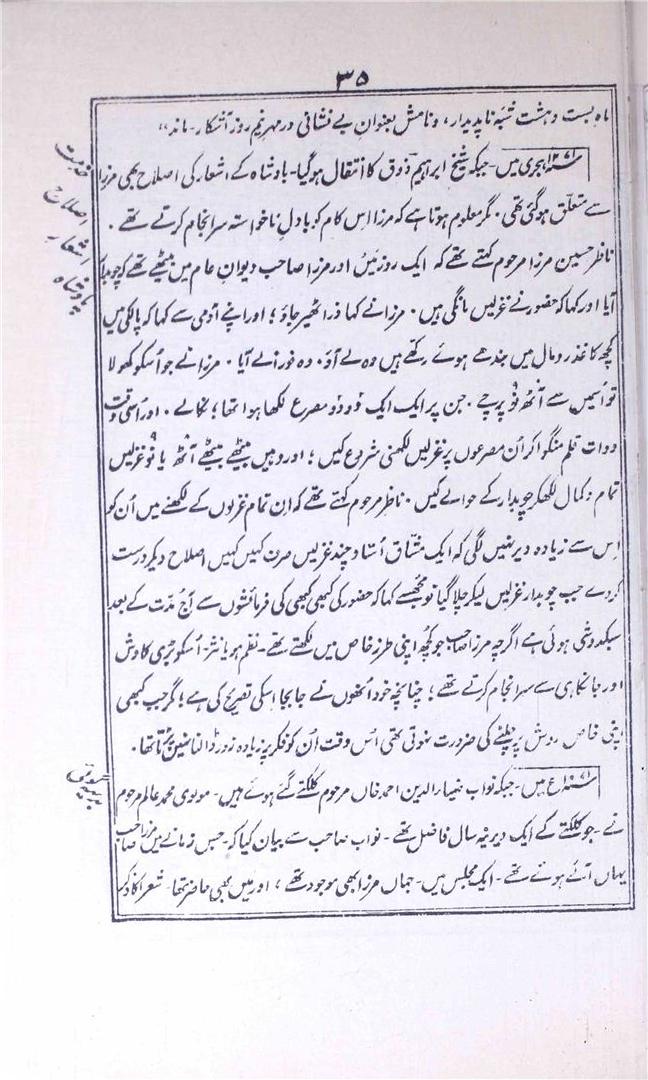 ۳۵
ماہ بست و ہشت شبہ ناپدیدار، و نامش بعنوانِ بے نشانی در مہر نیم روز آشکار۔ ماند"
۱۲۷۱ ہجری میں۔ جبکہ شیخ ابراہیم ذوق کا انتقال ہوگیا۔ بادشاہ کے اشعار کی اصلاح بھی مرزا
سے متعلق ہوگئی تھی۔ مگر معلوم ہوتا ہے کہ مرزا اس کام کو بادلِ ناخواستہ سرانجام کرتے تھے۔
ناظر حسین مرزا مرحوم کہتے تھے کہ ایک روز میں اور مرزا صاحب دیوانِ عام میں بیٹھے تھے کہ چوبدار
آیا اور کہا کہ حضور نے غزلیں مانگی ہیں۔ مرزا نے کہا ذرا ٹھیر جاؤ؛ اور اپنے آدمی سے کہا کہ پالکی میں
کچھ کاغذ رومال میں بندھے ہوئے رکھے ہیں وہ لے آؤ۔ وہ فوراً لے آیا۔ مرزا نے جو اُسکو کھولا
تو اُسمیں سے آٹھ نو پرچے۔ جن پر ایک ایک دو دو مصرع لکھا ہوا تھا؛ نکالے۔ اور اُسی وقت
دوات قلم منگوا کر اُن مصرعوں پر غزلیں لکھنی شروع کیں؛ اور وہیں بیٹھے بیٹھے آٹھ یا نو غزلیں
تمام و کمال لکھکر چوبدار کے حوالے کیں۔ ناظر مرحوم کہتے تھے کہ ان تمام غزلوں کے لکھنے میں اُن کو
اِس سے زیادہ دیر نہیں لگی کہ ایک مشّاق اُستاد چند غزلیں صرف کہیں کہیں اصلاح دیکر درست
کردے جب چوبدار غزلیں لیکر چلا گیا تو مجھسے کہا کہ حضور کی کبھی کبھی کی فرمائشوں سے آج مدّت کے بعد
سبکدوشی ہوئی ہے اگرچہ مرزا صاحب جو کچھ اپنی طرزِ خاص میں لکھتے تھے۔ نظم ہو یا نثر۔ اُسکو بڑی کاوش
اور جانکاہی سے سرانجام کرتے تھے؛ چنانچہ خود اُنھوں نے جابجا اِسکی تصریح کی ہے؛ مگر جب کبھی
اپنی خاص روش پر چلنے کی ضرورت نہوتی تھی اُس وقت اُن کو فکر پر زیادہ زور ڈالنا نہیں پڑتا تھا۔
میں۔ جبکہ نواب ضیاء الدین احمد خاں مرحوم کلکتے گئے ہوئے ہیں۔ مولوی محمد عالم مرحوم
نے۔ جو کلکتے کے ایک دیرینہ سال فاضل تھے۔ نواب صاحب سے بیان کیا کہ۔ جس زمانے میں مرزا صاحب
یہاں آئے ہوئے تھے۔ ایک مجلس میں۔ جہاں مرزا بھی موجود تھے، اور میں بھی حاضر تھا۔ شعرا کا ذکر
خدمت
اصلاح
اشعار
بادشاہ
بدیہہ گوئی